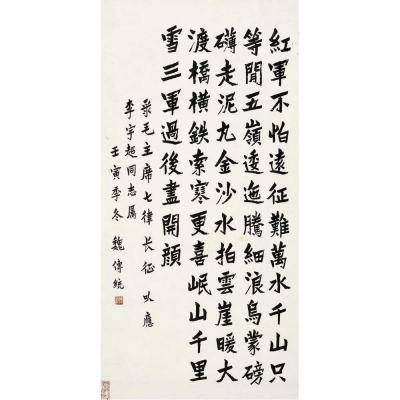 紅軍不怕遠征難萬水千山只
等閒五嶺逶迤騰細浪烏蒙磅
礴走泥丸金沙水拍雲崖暖大
渡橋橫鉄索寒更喜岷山千里
雪三軍過後盡開顏
彔毛主席七律長征以應
李宇超同志属
壬寅季冬 魏傳統